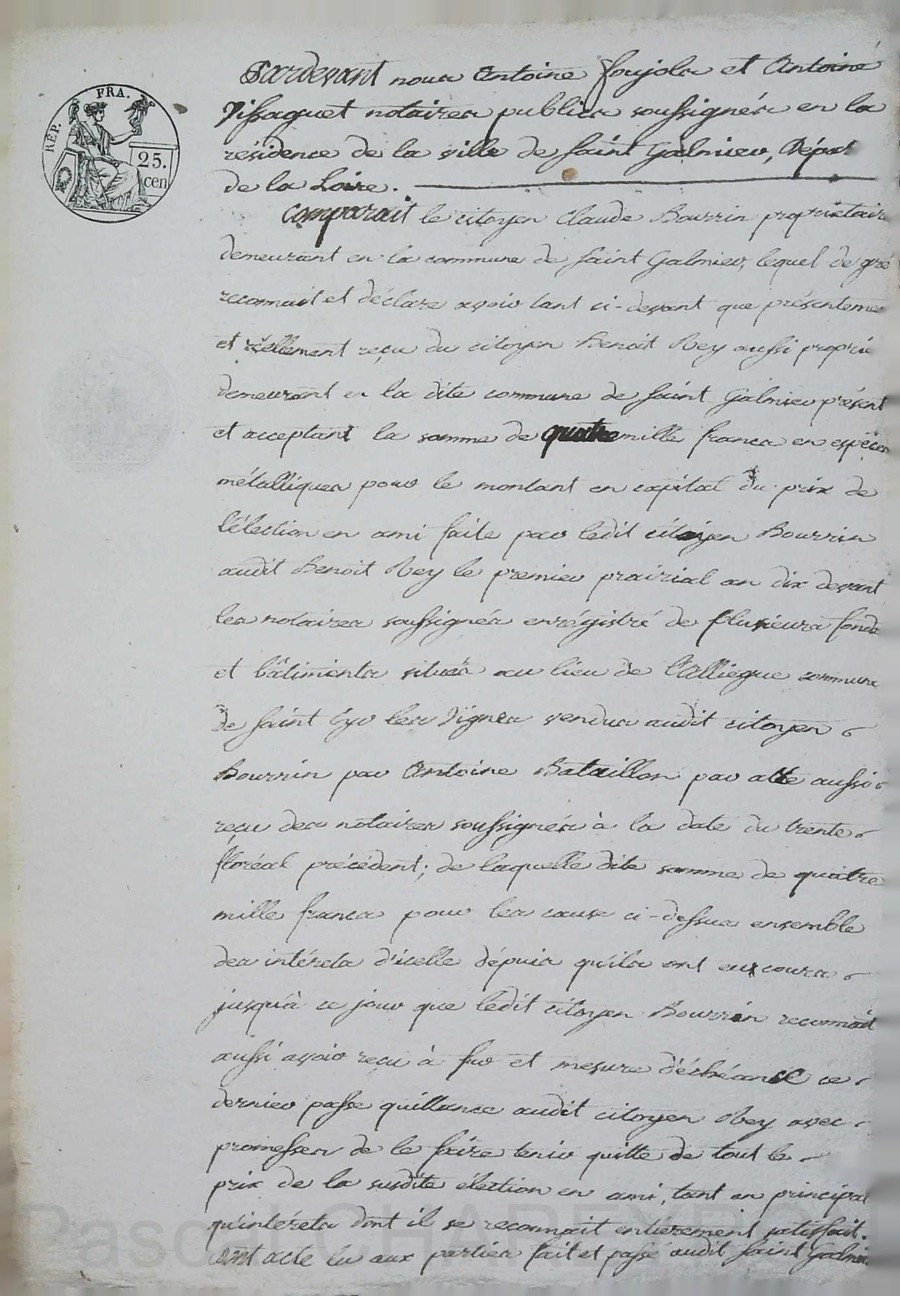 RÉP. FRA.
25. cen
Pardevant nous Antoine Foujols et Antoine
Vissaguet notaires publics soussignés en la
résidence de la ville de Saint Galmier, Dépar
de la Loire.
Comparait le citoyen Claude Bourrin propriétaire
demeurant en la commune de Saint Galmier, lequel de gré
reconnait et déclare avoir tant ci-devant que présenteme
et réellement reçu du citoyen Benoit Rey aussi proprié
demeurant en la dite commune de Saint Galmier présent
et acceptant la somme de quatre mille francs en espèces
métalliques pour le montant en capital du prix de
l'élection en ami faite par ledit citoyen Bourrin
audit Benoit Rey le premier prairial an dix devant
les notaires soussignés enrégistré de plusieurs fonds
et bâtiments situés au lieu de l'Alliegue commune
de Saint Cyr les Vignes vendus audit citoyen
Bourrin par Antoine Bataillon par acte aussi
reçu des notaires soussignés à la date du trente
floréal précédent; de laquelle dite somme de quatre
mille francs pour les cause ci-dessus ensemble
des intérets d'icelle dépuis qu'ils ont eu cours
jusqu'à ce jour que ledit citoyen Bourrin reconnoit
aussi avoir reçu à fur et mesure d'échéance ce
dernier passe quittance audit citoyen Rey avec
promesses de le faire tenir quitte de tout le
prix de la susdite élection en ami, tant en principal
qu'intérets dont il se reconnoit entierement satisfait.
Dont acte lu aux parties fait et passé audit Saint Galmier
Pascal CHAREYRON